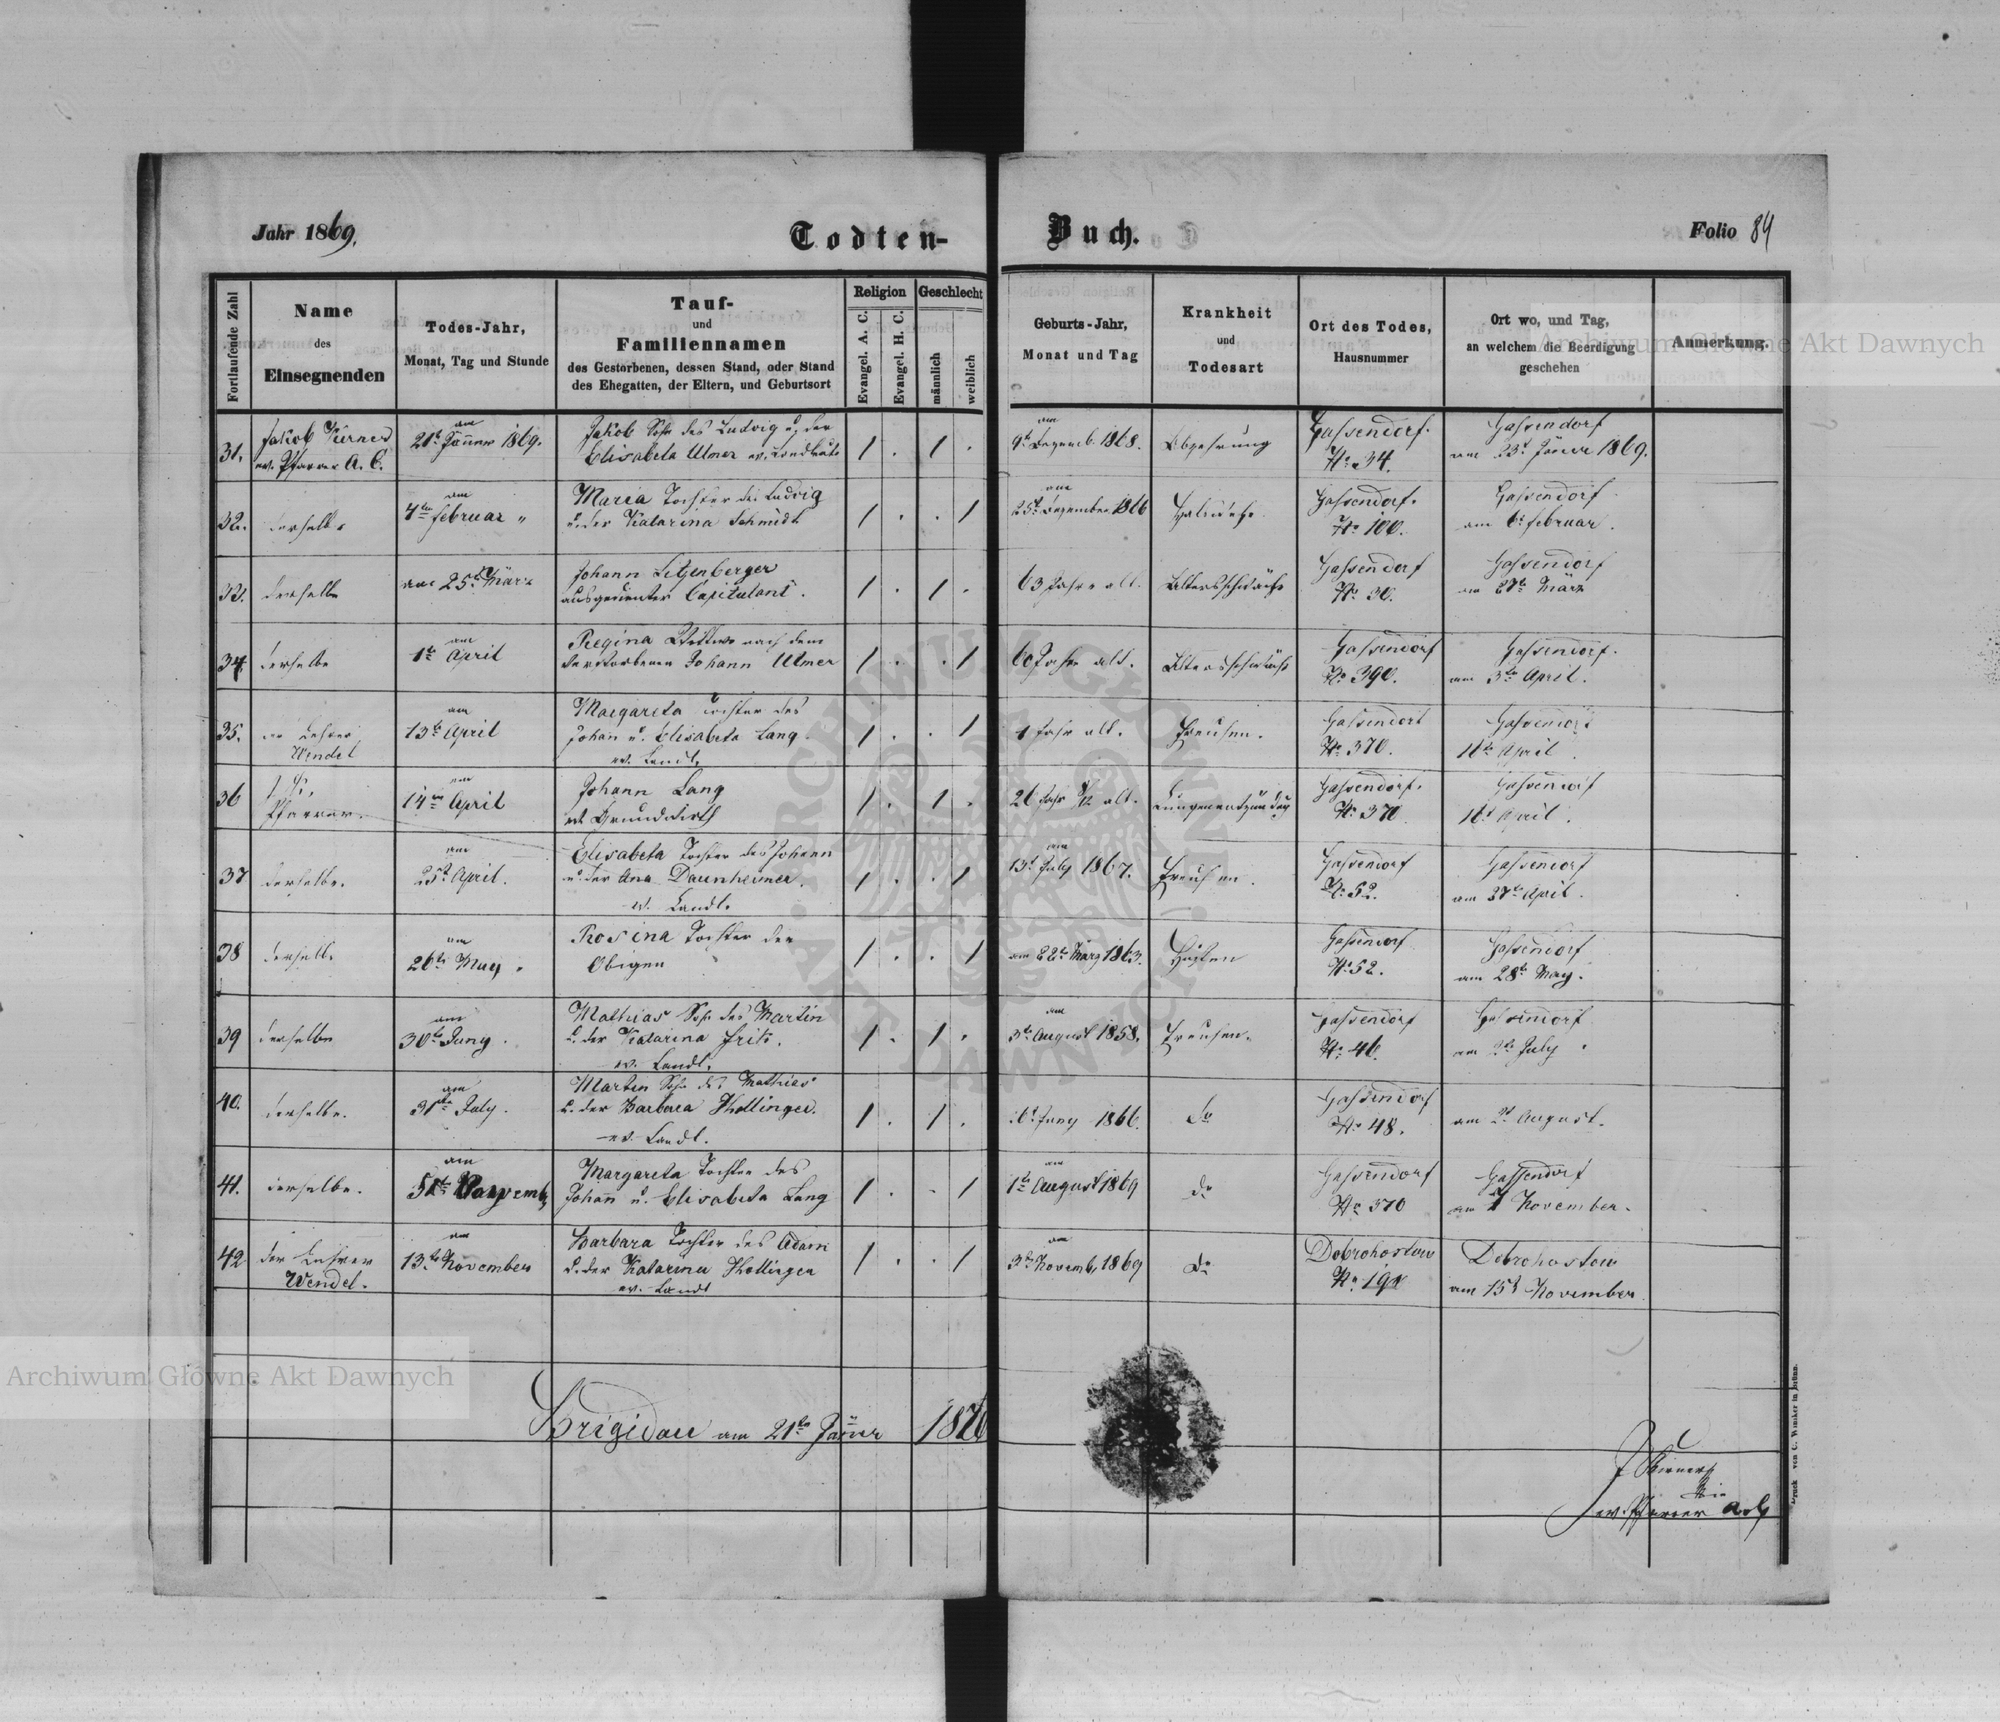 Jahr 1869.
Todten-
Buch.
Folio 84
Fortlaufende Zahl
Name
des
Einsegnenden
Todes-Jahr,
Monat, Tag und Stunde
Tauf-
und
Familiennamen
des Gestorbenen, dessen Stand, oder Stand
des Ehegatten, der Eltern, und Geburtsort
Religion
Evangel. A. C.
Evangel. H. C.
Geschlecht
männlich
weiblich
Geburts-Jahr,
Monat und Tag
Krankheit
und
Todesart
Ort des Todes,
Hausnummer
Ort wo, und Tag,
an welchem die Beerdigung
geschehen
Anmerkung.
31.
ev. Pfarrer A. C.
am
21t Jänner 1869.
Jakob Sohn des Ludwig u. der
Elisabeta Ulmer ev.
1 . 1 .
am
9t Dezemb. 1868.
Abzehrung
Gassendorf.
No 34.
Gassendorf
am 23t Jänner 1869.
32.
derselbe
am
4te Februar "
Maria Tochter des Ludwig
u. der Katarina Schmidt
1 . . 1
am
25t Dezember 1866
Gassendorf.
No 100.
Gassendorf
am 6t Februar.
33.
derselbe
am 25t März
Johann Litzenberger
ausgedienter Capitulant.
1 . 1 .
63 Jahre alt.
Altersschwäche
Gassendorf
No 30.
Gassendorf
am 27te März
34.
derselbe
am
1te April
Regina Wittwe nach dem
verstorbenen Johann Ulmer
1 . . 1
60 Jahre alt.
Altersschwäche
Gassendorf
No 390.
Gassendorf.
am 3te April.
35.
der Lehrer
Wendel
am
13te April
Margareta Tochter des
Johan u. Elisabeta Lang.
ev. Landl.
1 . . 1
1 Jahr alt.
Freusen.
Gassendorf
No 370.
Gassendorf
April.
36
Pfarrer.
am
14te April
Johann Lang
ev. Grundwirth
1 . 1 .
alt.
Lungenentzündung
Gassendorf.
No 370
Gassendorf
April.
37
derselbe.
am
25t April.
Elisabeta Tochter des Johann
u. der Ana Daunheimer.
ev. Landl.
1 . . 1
am
13t July 1867.
Freusen.
Gassendorf
No 52.
Gassendorf
am 27te April.
38
derselbe
am
26te May.
Rosina Tochter der
Obigen
1 . . 1
am 22te März 1863.
Husten
Gassendorf
No 52.
Gassendorf
am 28te May.
39
derselbe
am
30te Juny.
Mathias Sohn des Martin
u. der Katarina Fritz.
ev. Landl.
1 . 1 .
am
3te August 1858.
Freusen.
Gassendorf
No 46.
Gassendorf
am 2te July.
40.
derselbe.
am
31te July.
Martin Sohn des Mathias
u. der Barbara Hollinger.
ev. Landl.
1 . 1 .
6t Juny 1866.
do
Gassendorf
No 48.
am 2t August.
41.
derselbe.
am
Margareta Tochter des
Johañ u. Elisabeta Lang
1 . . 1
am
1te August 1869
do
Gassendorf
No 370
Gassendorf
am 1 November.
42
der Lehrer
Wendel.
am
13te November
Barbara Tochter des Adam
u. der Katarina Hollinger
ev. Landl
1 . . 1
am
3te Novemb. 1869
Do
Dobrohostow
Dobrohostow
am 15t November
Brigidau am 21te Jänner 1870
ev. Pfarrer A. C.
Druck von C. Winiker in Brünn.
Archiwum Główne Akt Dawnych
Archiwum Główne Akt Dawnych
ARCHIWUM GŁÓWNE
AKT DAWNYCH